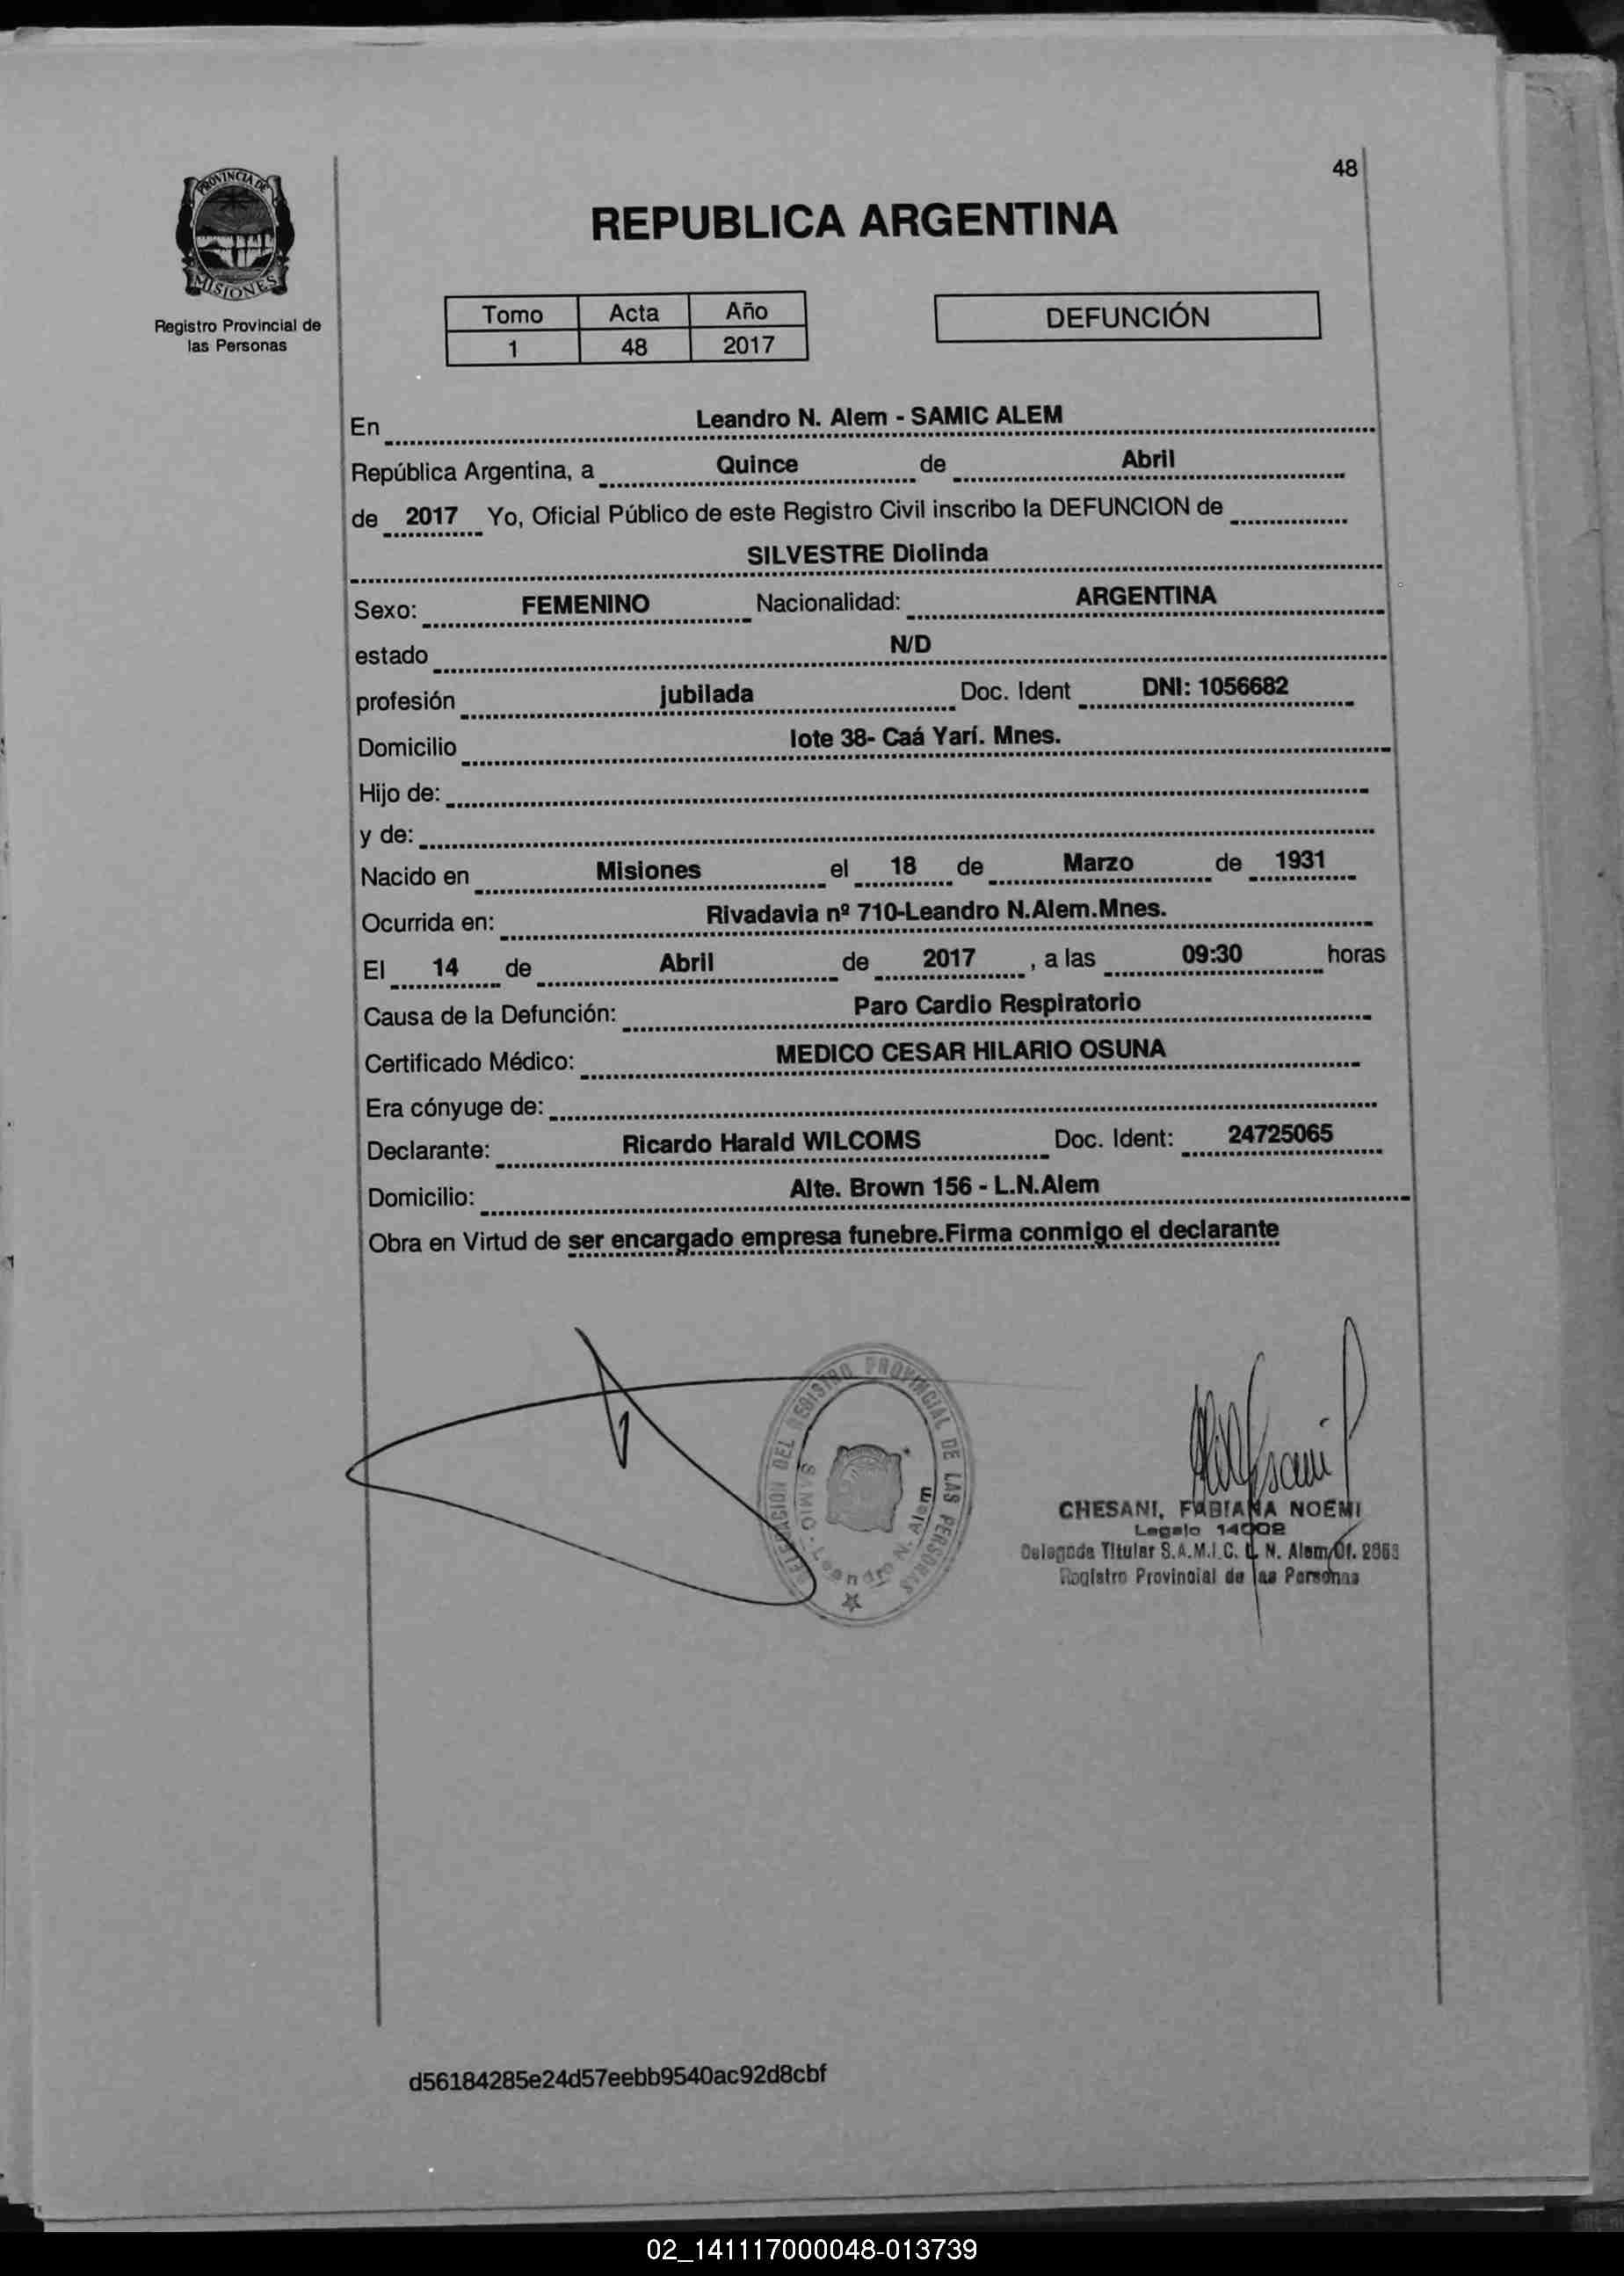 48
PROVINCIA DE
MISIONES
Registro Provincial de
las Personas
REPUBLICA ARGENTINA
Tomo Acta Año
1 48 2017
DEFUNCIÓN
En Leandro N. Alem - SAMIC ALEM
República Argentina, a Quince de Abril
de 2017 Yo, Oficial Público de este Registro Civil inscribo la DEFUNCION de
SILVESTRE Diolinda
Sexo: FEMENINO Nacionalidad: ARGENTINA
estado N/D
profesión jubilada Doc. Ident DNI: 1056682
Domicilio lote 38- Caá Yarí. Mnes.
Hijo de:
y de:
Nacido en Misiones el 18 de Marzo de 1931
Ocurrida en: Rivadavia nº 710-Leandro N.Alem.Mnes.
El 14 de Abril de 2017 , a las 09:30 horas
Causa de la Defunción: Paro Cardio Respiratorio
Certificado Médico: MEDICO CESAR HILARIO OSUNA
Era cónyuge de:
Declarante: Ricardo Harald WILCOMS Doc. Ident: 24725065
Domicilio: Alte. Brown 156 - L.N.Alem
Obra en Virtud de ser encargado empresa funebre.Firma conmigo el declarante
DELEGACION DEL REGISTRO PROVINCIAL DE LAS PERSONAS
SAMIC - Leandro N. Alem
CHESANI, FABIANA NOEMI
Legajo 14002
Delegada Titular S.A.M.I.C. L. N. Alem Of.
Registro Provincial de las Personas
d56184285e24d57eebb9540ac92d8cbf
02_141117000048-013739